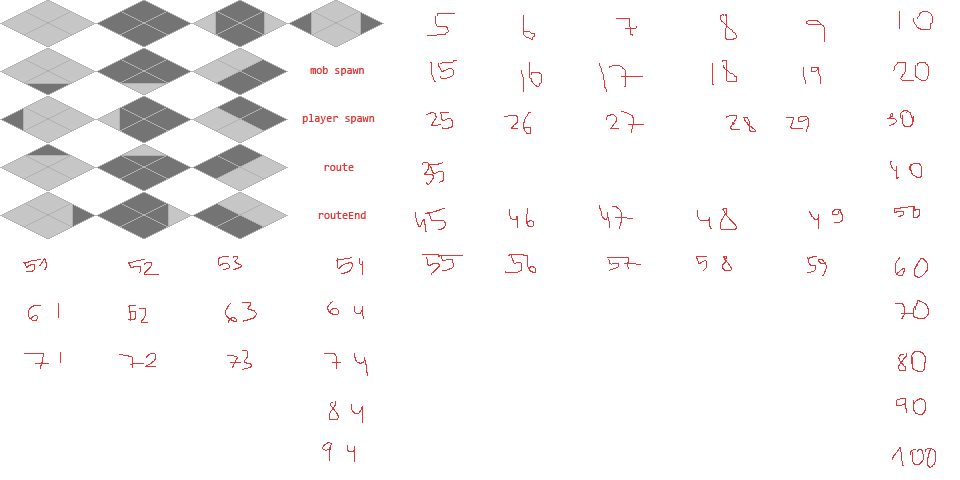 5 6 7 8 9 10
mob spawn 15 16 17 18 19 20
player spawn 25 26 27 28 29 30
route 35 40
routeEnd 45 46 47 48 49 50
51 52 53 54 55 56 57 58 59 60
61 62 63 64 70
71 72 73 74 80
84 90
94 100